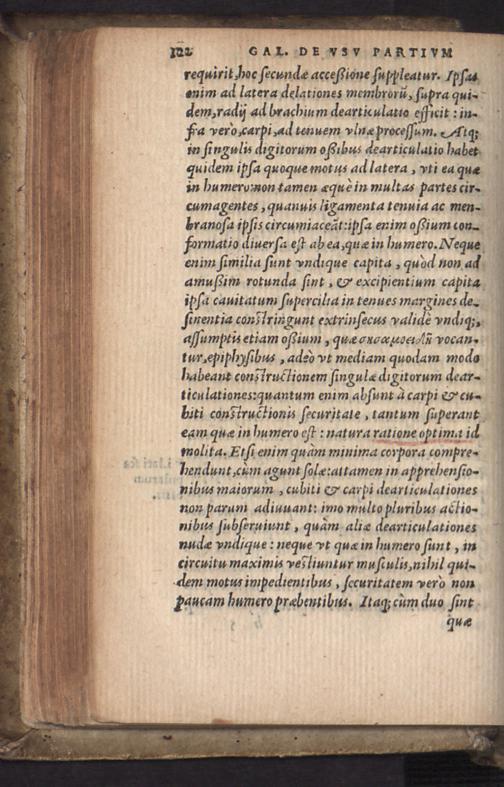 122 GAL. DE VSV PARTIVM
requirit, hoc secundæ accessione suppleatur. Ipsas
enim ad latera delationes membrorũ, supra qui-
dem, radij ad brachium dearticulatio efficit: in-
fra vero, carpi, ad tenuem vlnæ processum. Atq;
in singulis digitorum ossibus dearticulatio habet
quidem ipsa quoque motus ad latera, vti ea quæ
in humero: non tamen æquè in multas partes cir-
cumagentes, quanuis ligamenta tenuia ac mem-
branosa ipsis circumiaceãt: ipsa enim ossium con-
formatio diuersa est ab ea, quæ in humero. Neque
enim similia sunt vndique capita, quòd non ad
amussim rotunda sint, & excipientium capita
ipsa cauitatum supercilia in tenues margines de-
sinentia constringunt extrinsecus validè vndiq;,
assumptis etiam ossium, quæ σησαμοειδῆ vocan-
tur, epiphysibus, adeò vt mediam quodam modo
habeant constructionem singulæ digitorum dear-
ticulationes: quantum enim absunt à carpi & cu-
biti constructionis securitate, tantum superant
eam quæ in humero est: natura ratione optima id
molita. Etsi enim quàm minima corpora compre-
hendunt, cùm agunt solæ: attamen in apprehensio-
nibus maiorum, cubiti & carpi dearticulationes
non parum adiuuant: imo multo pluribus actio-
nibus subseruiunt, quàm aliæ dearticulationes
nudæ vndique: neque vt quæ in humero sunt, in
circuitu maximis vestiuntur musculis, nihil qui-
dem motus impedientibus, securitatem verò non
paucam humero præbentibus. Itaq; cùm duo sint
quæ